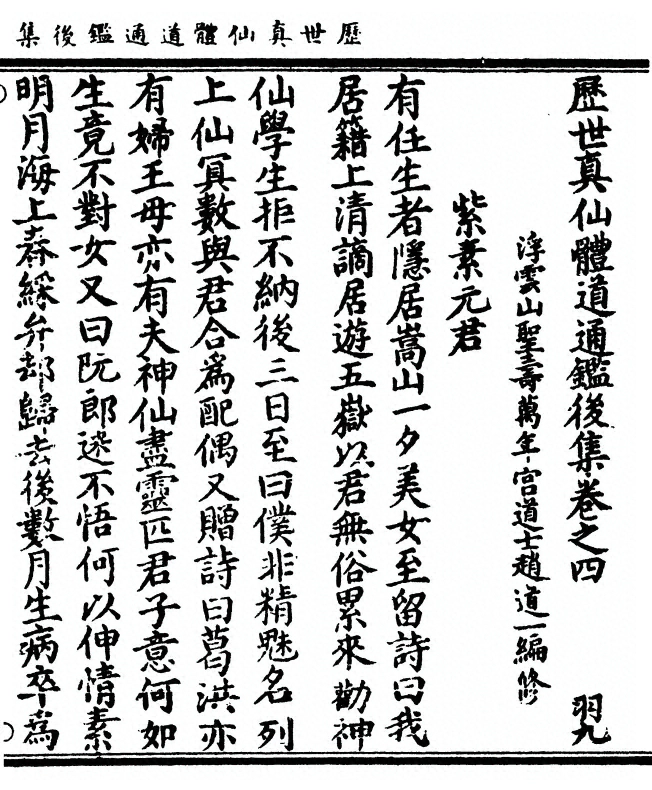 歷世真仙體道通鑑後集
歷世真仙體道通鑑後集卷之四　羽九
浮雲山聖壽萬年宮道士趙道一編修
紫素元君
有任生者隱居嵩山一夕美女至留詩曰我
居籍上清謫居遊五嶽以君無俗累來勸神
仙學生拒不納後三日至曰僕非精魅名列
上仙冥數與君合爲配偶又贈詩曰葛洪亦
有婦王母亦有夫神仙盡靈匹君子意何如
生竟不對女又曰阮郎迷不悟何以伸情素
明月海上春綵舟却歸去後數月生病卒爲